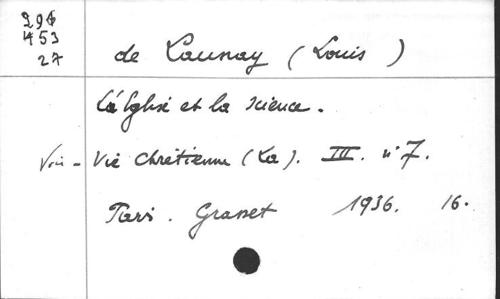 453
27
de Launay (Louis)
L'Église et la Science.
Voir - Vie Chrétienne (La). III. n° 7.
Paris. Grasset 1936. 16.